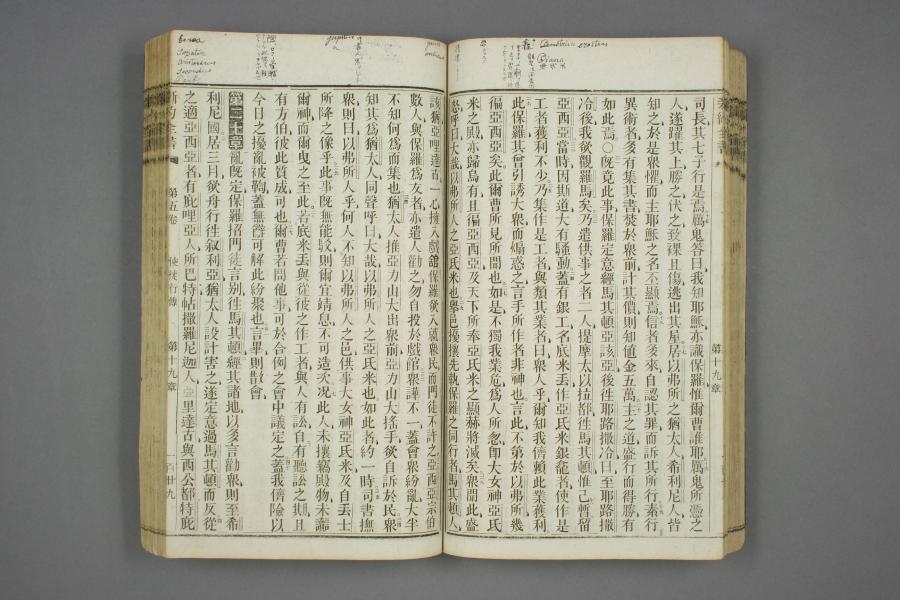 司長其七子行是焉厲鬼答曰我知耶穌亦識保羅惟爾曹誰耶厲鬼所憑之
人遂躍其上勝之伏之致裸且傷逃出其屋居以弗所之猶太人希利尼人皆
知之於是眾懼而主耶穌之名至顯焉信者多來自認其罪而訴其所行素行
異術者多有集其書焚於眾前計其價則知値金五萬主之道盛行而得勝有
如此焉○旣竟此事保羅定意經馬其頓亞該亞後往耶路撒冷曰至耶路撒
冷後我欲觀羅馬矣乃遣供事之者二人提摩太以拉都往馬其頓惟己暫留
亞西亞當時因斯道大有騷動蓋有銀工名底米丟作亞氏米銀龕者使作是
工者獲利不少乃集作是工者與類其業者曰眾人乎爾知我儕賴此業獲利
此保羅其曾引誘大眾而煽惑之言手所作者非神也言此不第於以弗所幾
徧亞西亞矣此爾曹所見所聞也如是不獨我業危爲人所忽卽大女神亞氏
米之殿亦歸烏有且徧亞西亞及天下所奉亞氏米之顯赫將滅矣眾聞此盛
怒呼曰大哉以弗所人之亞氏米也舉邑擾攘先執保羅之同行者馬其頓人
第十九章
該猶亞哩達古一心擁入戲舘保羅欲入就眾民而門徒不許之亞西亞宗伯
數人與保羅爲友者亦遣人勸之勿自投於戲舘眾譁不一蓋會眾紛亂大半
不知何爲而集也猶太人推亞力山大出眾前亞力山大搖手欲自訴於民眾
知其爲猶太人同聲呼曰大哉以弗所人之亞氏米也如此者約一時司書撫
眾則曰以弗所人乎何人不知以弗所人之邑供事大女神亞氏米及自丟士
所降之像乎此事旣無能駁則爾宜靖息不可造次况此人未攘竊殿物未讟
爾神而爾曳之至此若底米丟與從彼之作工者與人有訟自有聽訟之期且
有方伯彼此質成可也爾曹若問他事可於合例之會中議定之蓋我儕險以
今日之擾亂被鞫蓋無辭可解此紛聚也言畢則散會
第二十章亂旣定保羅招門徒言別往馬其頓經其諸地以多言勸眾則至希
利尼國居三月欲舟行往叙利亞猶太人設計害之遂定意過馬其頓而反從
之適亞西亞者有庇哩亞人所巴特帖撒羅尼迦人亞里達古與西公都特庇
新約全書
第五卷
使徒行傳
第十九章
一百廿九